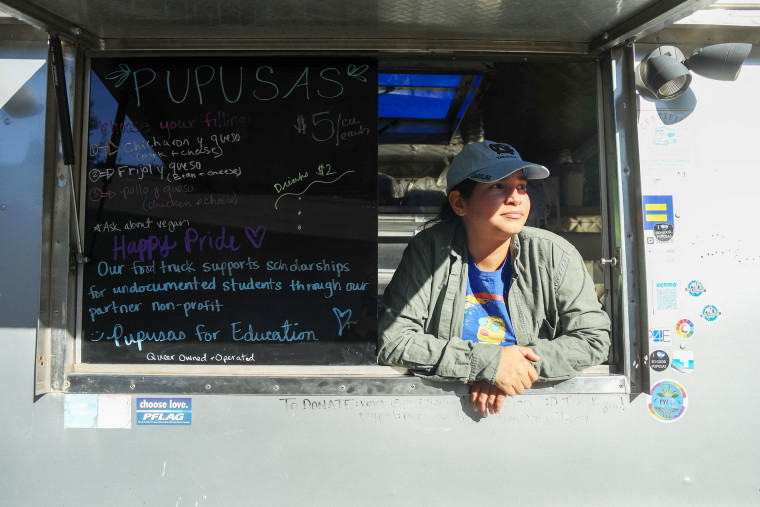 PUPUSAS
your filling:
$5/ca
/each
① ⇒ Chicharon y queso
(pork + cheese)
② ⇒ Frijol y queso
(bean + cheese)
③ ⇒ pollo y queso
(chicken + cheese)
Drinks $2
*Ask about vegan
Happy Pride
Our food truck supports scholarships
for undocumented students through our
partner non-profit
Pupusas for Education
Queer Owned + Operated
choose love.
PFLAG
TO DONATE:
venmo